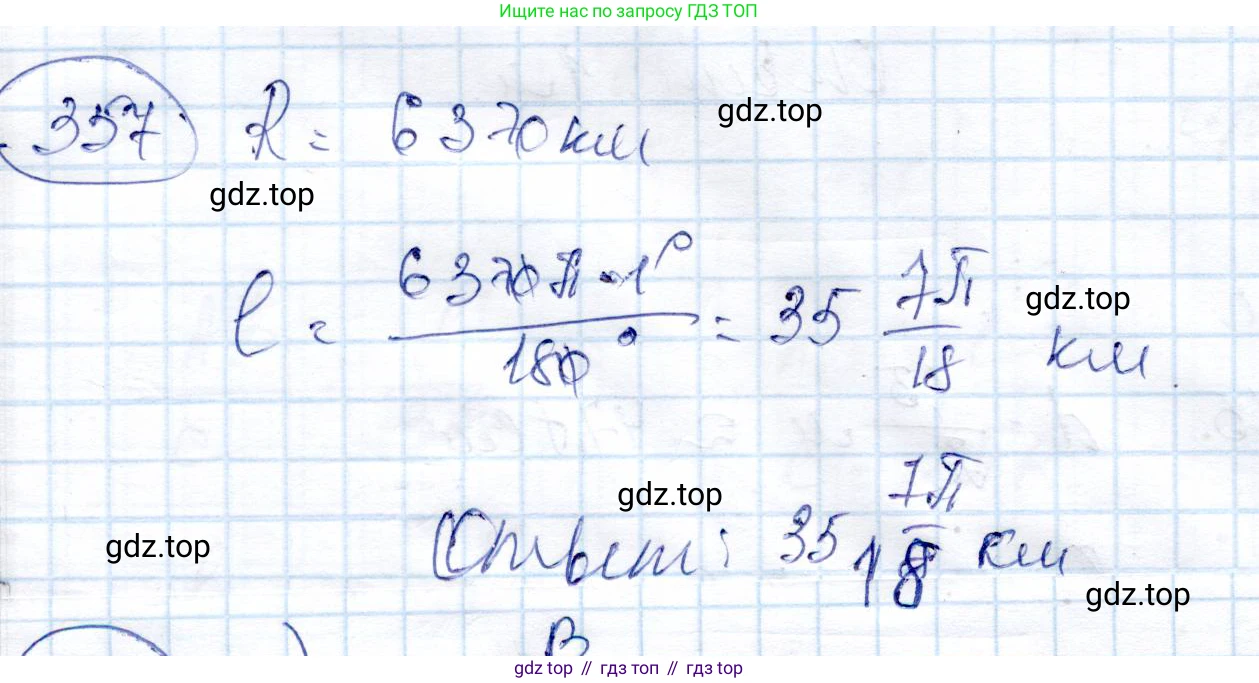 Ищите нас по запросу ГДЗ ТОП
357 R = 6370 км
gdz.top
gdz.top
l = 6370π · 1° / 180° = 35 7π/18 км
gdz.top
gdz.top
Ответ: 35 7π/18 км
gdz.top
gdz.top
В
gdz top // гдз топ // гдз top